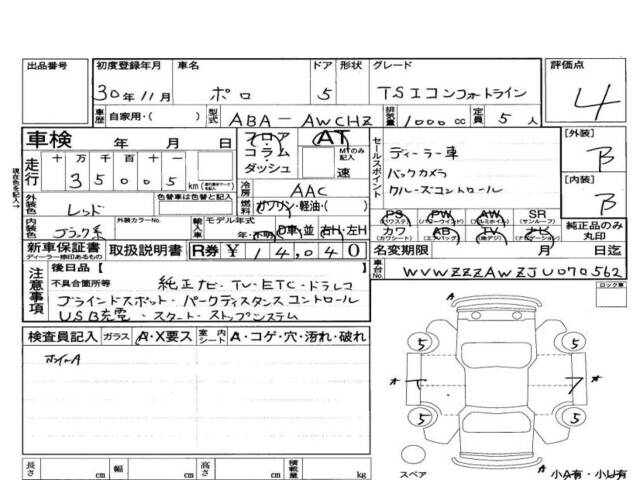 出品番号 初度登録年月 車名 ドア 形状 グレード 評価点
30年11月 ポロ 5 TSIコンフォートライン 4
車歴 自家用・( ) 型式 ABA-AWCHZ 排気量 1000cc 定員 5人
車検 年 月 日 フロア コラム・ダッシュ AT MTのみ記入 速
セールスポイント ディーラー車 バックカメラ クルーズコントロール
[外装] B
[内装] B
走行 十万千百十一 35005 km
冷房 AAC
外装色 レッド 色替車は色替と記入 燃料 ガソリン・軽油・( )
内装色 ブラック系 外装カラーNo. 輸入車 モデル年式 年・不明 D車・並 右H・左H
PS (パワステ) PW (パワーウインド) AW (アルミホイル) SR (サンルーフ)
カワ (カワシート) AB (エアバッグ) TV (純デジ) ナビ (ナビゲーション)
純正品のみ丸印
新車保証書 ディーラー様印あるもの 取扱説明書 R券 ¥14,040 名変期限 月 日
注意事項 後日品【 】
車台No. WVWZZZAWZJU070562
不具合箇所等 純正ナビ・TV・ETC・ドラレコ
ブラインドスポット・パークディスタンスコントロール
USB充電・スタート・ストップシステム
ロック車
検査員記入 ガラス A・X要ス 室内シート A・コゲ・穴・汚れ・破れ
ホイールA
5 5
5 5
スペア
小A有・小U有
長さ cm 幅 cm 高さ cm 積載量 kg
現在色を記入→